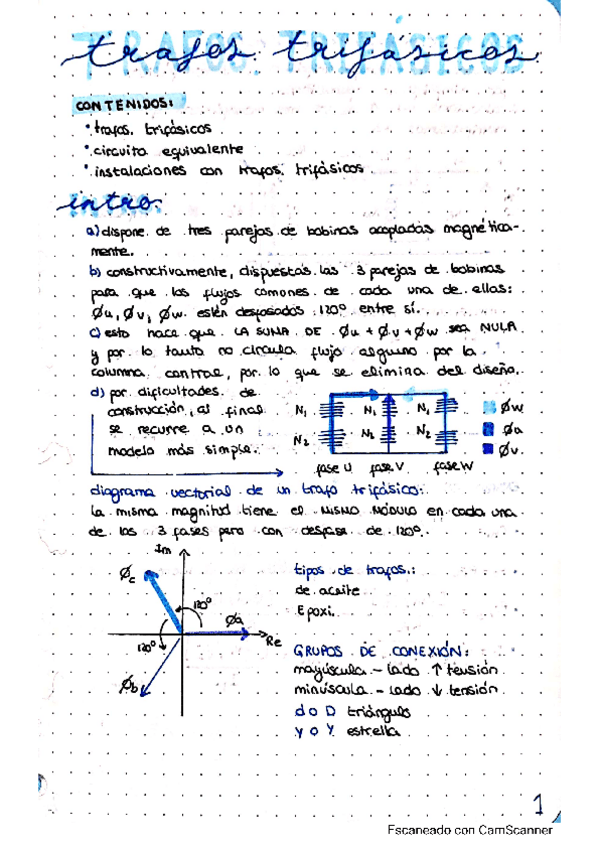 trafos trifásicos
CONTENIDOS:
• trafos trifásicos
• circuito equivalente
• instalaciones con trafos trifásicos
intro.
a) dispone de tres parejas de bobinas acopladas magnética-
mente.
b) constructivamente, dispuestas las 3 parejas de bobinas
para que los flujos comunes de cada una de ellas:
Øu, Øv, Øw estén desfasados 120º entre sí.
c) esto hace que LA SUMA DE Øu + Øv + Øw sea NULA
y por lo tanto no circula flujo alguno por la
columna central, por lo que se elimina del diseño.
d) por dificultades de
construcción, al final
se recurre a un
modelo más simple.
N₁ N₁ N₁
N₂ N₂ N₂
Øw
Øu
Øv
fase U fase V fase W
diagrama vectorial de un trafo trifásico:
la misma magnitud tiene el MISMO MÓDULO en cada una
de las 3 fases pero con desfase de 120º.
Im
Øc
120º
Øa
Re
120º
Øb
tipos de trafos:
de aceite
Epoxi.
GRUPOS DE CONEXIÓN:
mayúscula - lado ↑ tensión
minúscula - lado ↓ tensión
d o D triángulo
y o Y estrella
1
Escaneado con CamScanner